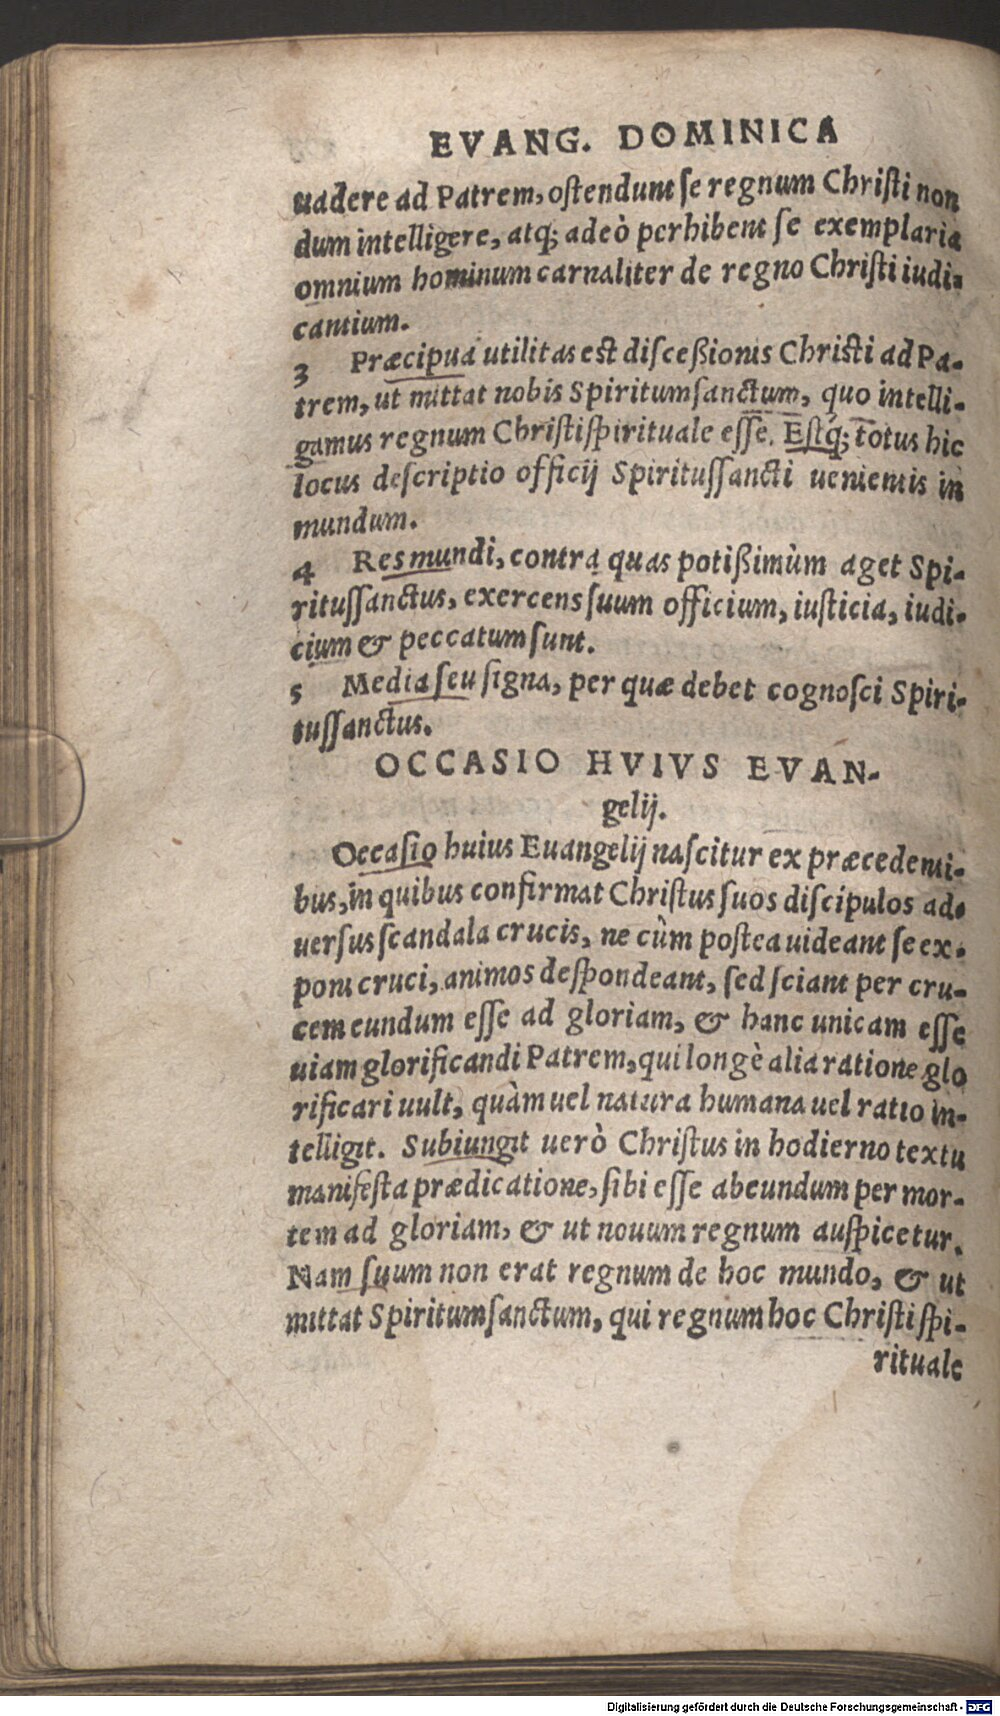 EVANG. DOMINICA
uadere ad Patrem, ostendunt se regnum Christi non
dum intelligere, atq; adeò perhibent se exemplaria
omnium hominum carnaliter de regno Christi iudi-
cantium.
3 Præcipua utilitas est disceßionis Christi ad Pa-
trem, ut mittat nobis Spiritumsanctum, quo intelli-
gamus regnum Christi spirituale esse. Estq; totus hic
locus descriptio officij Spiritussancti uenientis in
mundum.
4 Res mundi, contra quas potißimùm aget Spi-
ritussanctus, exercens suum officium, iusticia, iudi-
cium & peccatum sunt.
5 Media seu signa, per quæ debet cognosci Spiri-
tussanctus.
OCCASIO HVIVS EVAN-
gelij.
Occasio huius Euangelij nascitur ex præcedenti-
bus, in quibus confirmat Christus suos discipulos ad-
uersus scandala crucis, ne cùm postea uideant se ex-
poni cruci, animos despondeant, sed sciant per cru-
cem eundum esse ad gloriam, & hanc unicam esse
uiam glorificandi Patrem, qui longè alia ratione glo
rificari uult, quàm uel natura humana uel ratio in-
telligit. Subiungit uerò Christus in hodierno textu
manifesta prædicatione, sibi esse abeundum per mor-
tem ad gloriam, & ut nouum regnum auspicetur.
Nam suum non erat regnum de hoc mundo, & ut
mittat Spiritumsanctum, qui regnum hoc Christi spi-
rituale
Digitalisierung gefördert durch die Deutsche Forschungsgemeinschaft - DFG